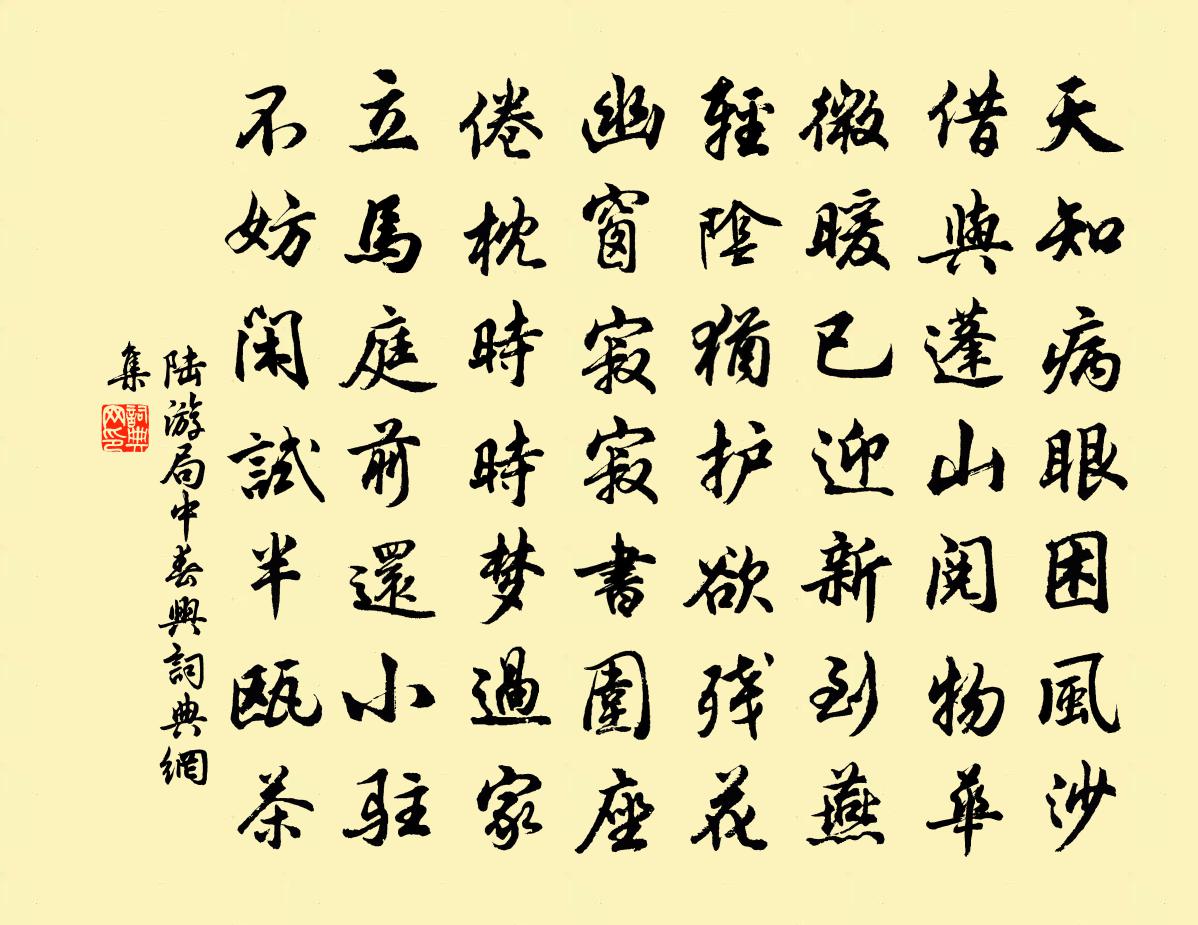 天知病眼困風沙
借與蓬山閱物華
微暖已迎新到燕
輕陰猶护欲残花
幽窗寂寂書圍座
倦枕時時梦過家
立馬庭前還小駐
不妨閑試半甌茶
陸游局中春興詞典網
集
詞典
网印